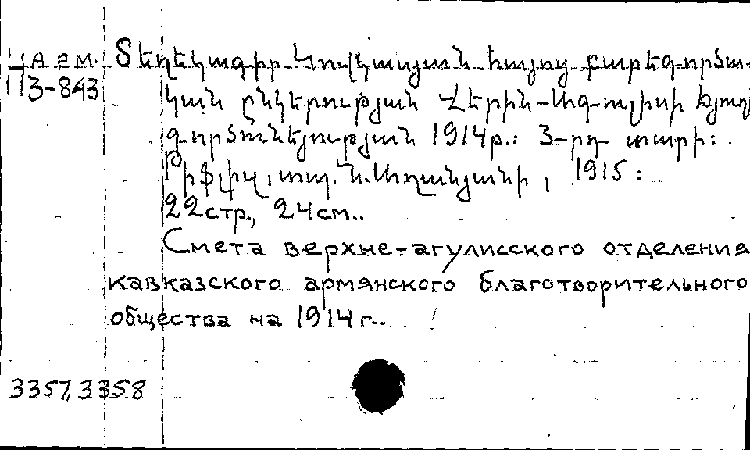 ЦАЗМ. Տեղեկագիր Կովկասյան հայոց բարեգործա-
П3-843 կան ընկերության Վերին-Ագուլիսի մյուղ
գործունեության 1914թ.: 3-րդ տարի:
Թիֆլիս, տպ. Ն.Աղանյանի, 1915:
22стр., 24см..
Смета верхне-агулисского отделения
кавказского армянского благотворительного
общества на 1914г..
3357,3358